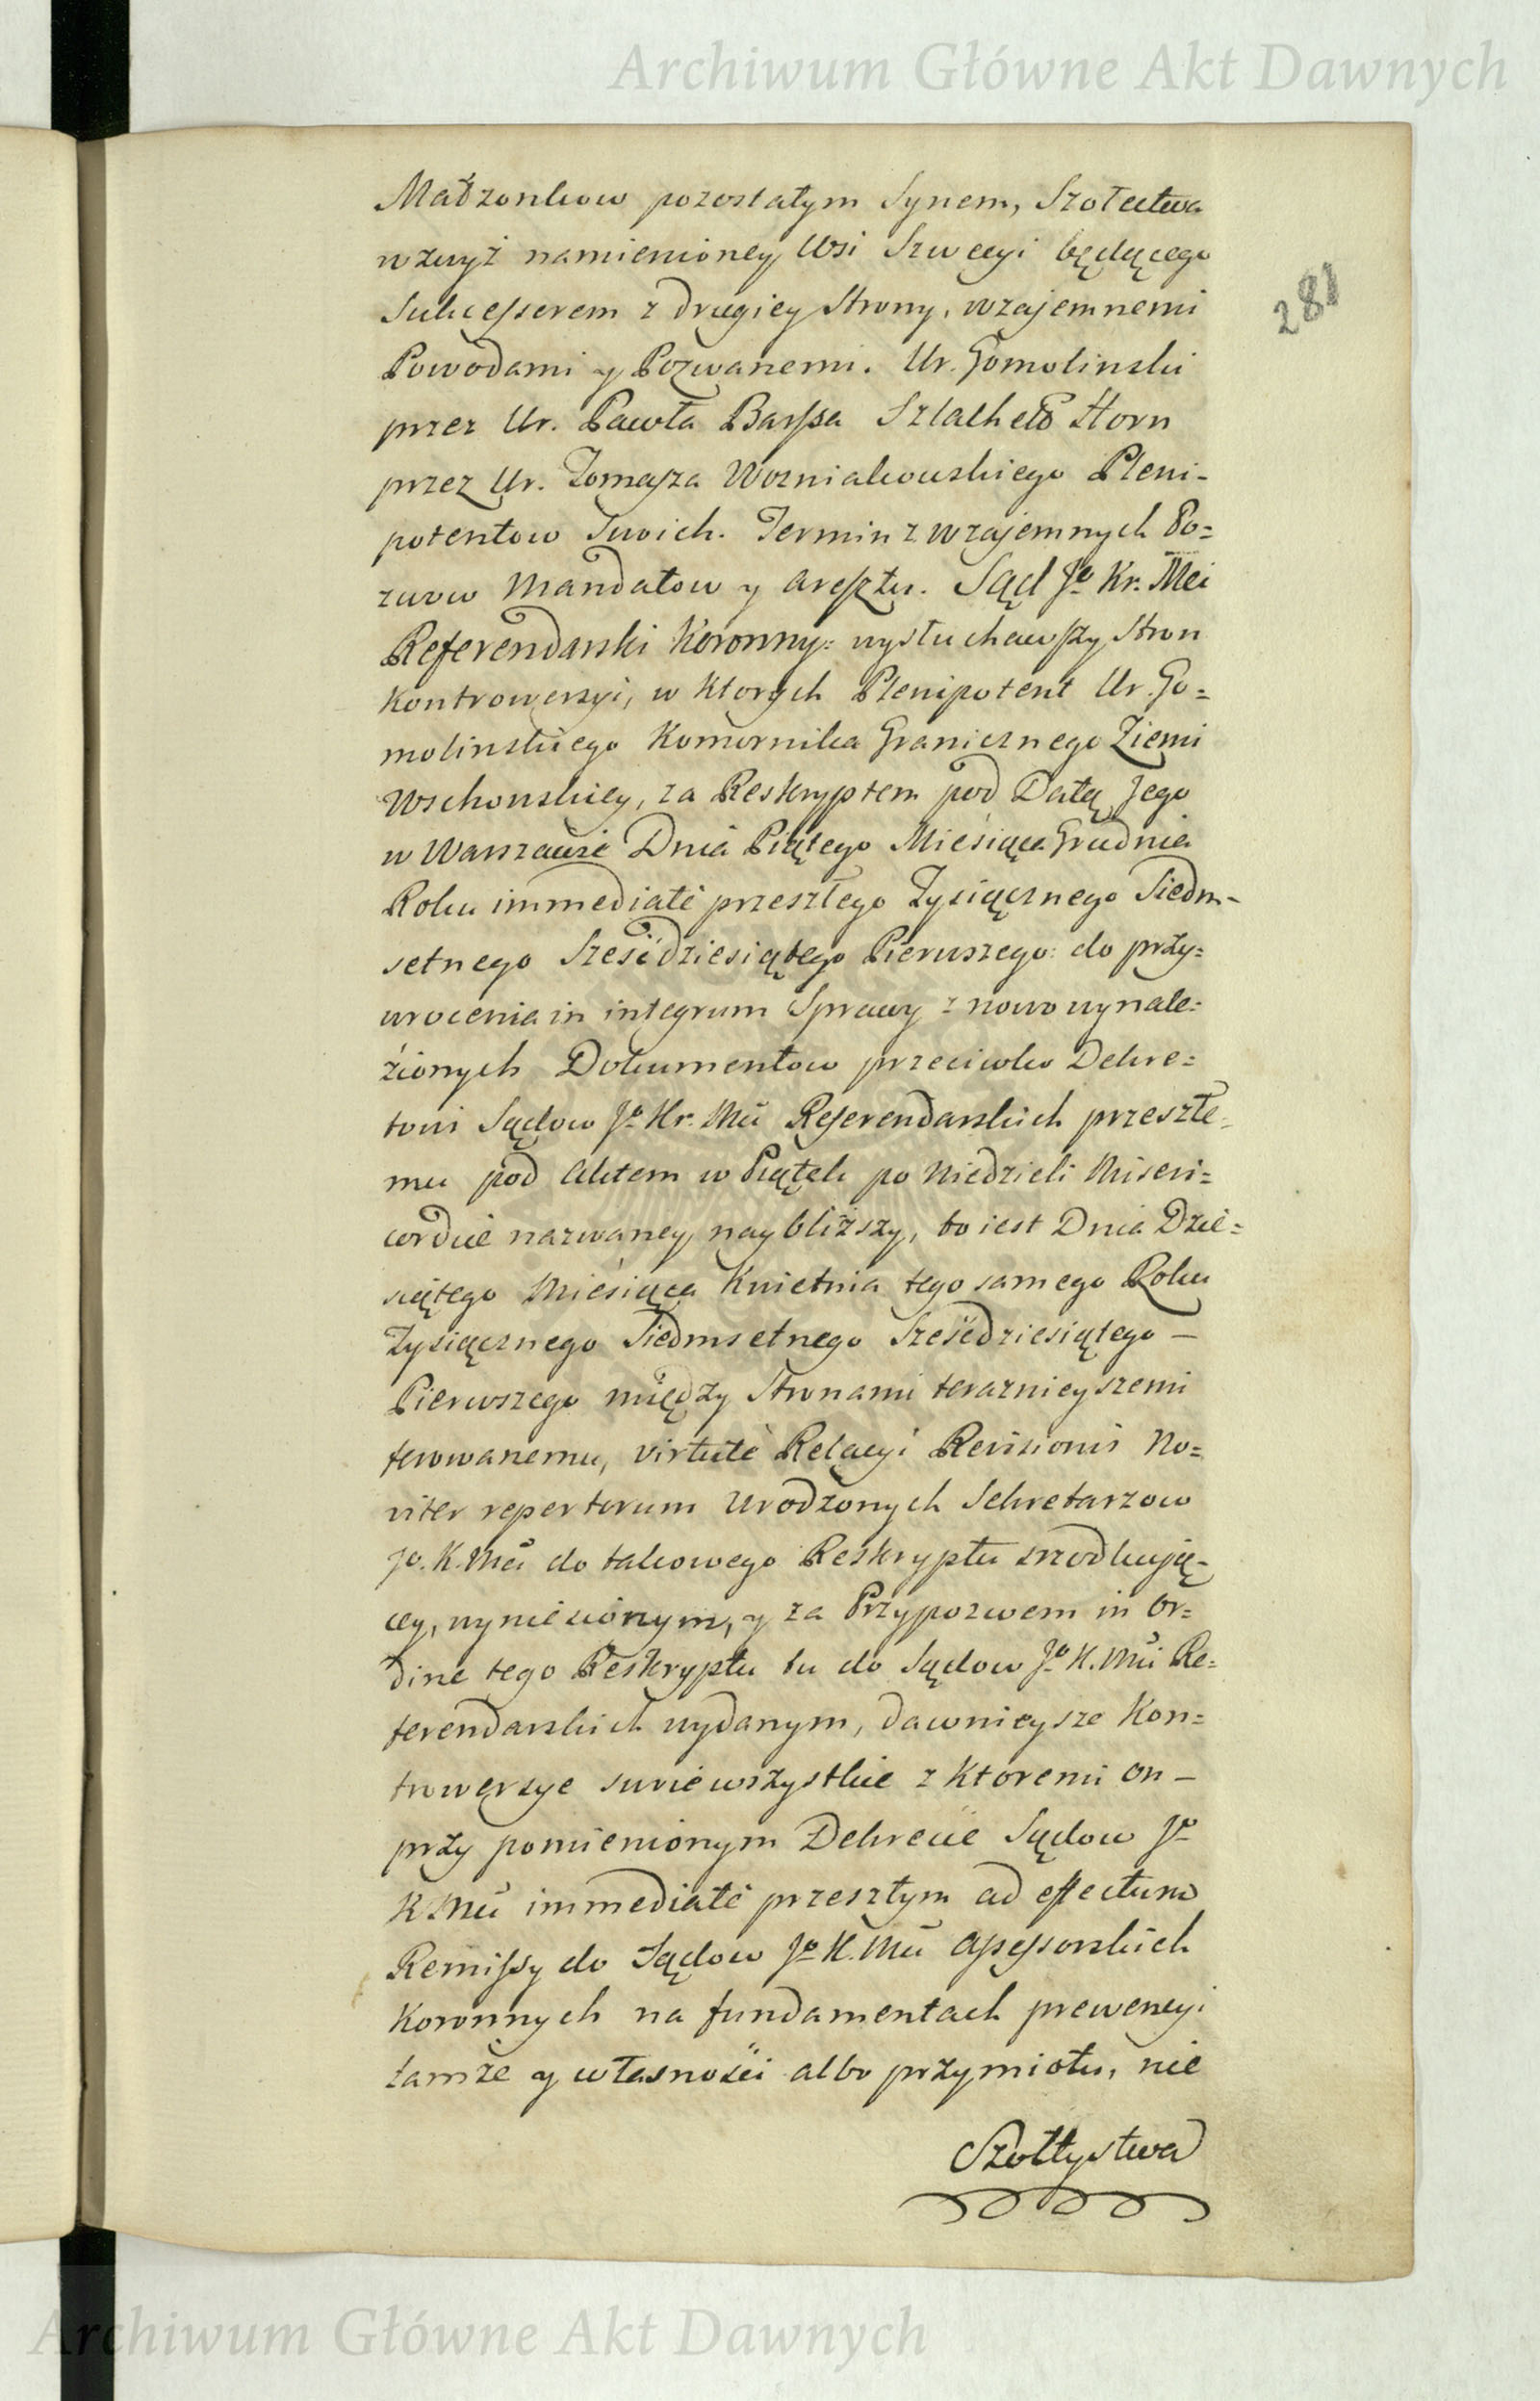 Archiwum Główne Akt Dawnych
281
Małżonkow pozostałym Synem, Szołectwa
wzwyż namienioney Wsi Szwecyi będącego
Sukcessorem z drugiey Strony, wzajemnemi
Powodami y Pozwanemi. Ur. Gomolinski
przez Ur. Pawła Barssa Szlachetɓ Horn
przez Ur. Tomasza Wozniakowskiego Pleni-
potentow Swoich. Termin z wzajemnych Po=
zwow Mandatow y aresztu. Sąd Jo Kr. Mci
Referendarski Koronny: wysłuchawszy Stron
Kontrowersyi, w Ktorych Plenipotent Ur. Go=
molinskiego Komornika Granicznego Ziemi
Wschowskiey, za Reskryptem pod Datą Jego
w Warszawie Dnia Piątego Miesiąca Grudnia
Roku immediatè przeszłego Tysiącznego Siedm-
setnego Sześćdziesiątego Pierwszego: do przy=
wrocenia in integrum Sprawy z nowo wynale=
źionych Dokumentow przeciwko Dekre=
towi Sądow Jo Kr. Mci Referendarskich przeszłe=
mu pod Aktem w Piątek po Niedzieli Miseri=
cordie nazwaney naybliższy, to iest Dnia Dzie=
siątego Miesiąca Kwietnia tego samego Roku
Tysiącznego Siedmsetnego Sześćdziesiątego —
Pierwszego między Stronami teraznieyszemi
ferowanemu, virtutè Relacyi Revisionis No=
viter repertorum Urodzonych Sekretarzow
Jo. K. Mci do takowego Reskryptu srzodkują=
cey, wyniesionym, y za Przypozwem in or=
dine tego Reskryptu tu do Sądow Jo K. Mci Re=
ferendarskich wydanym, dawnieysze Kon=
trowersye swoie wszystkie z Ktoremi on —
przy pomienionym Dekrecie Sądow Jo
K Mci immediatè przeszłym ad effectum
Remissy do Sądow Jo K. Mci Assessorskich
Koronnych na fundamentach prewencyi
tamże y własności albo przymiotu, nie
Szołtystwa
Archiwum Główne Akt Dawnych